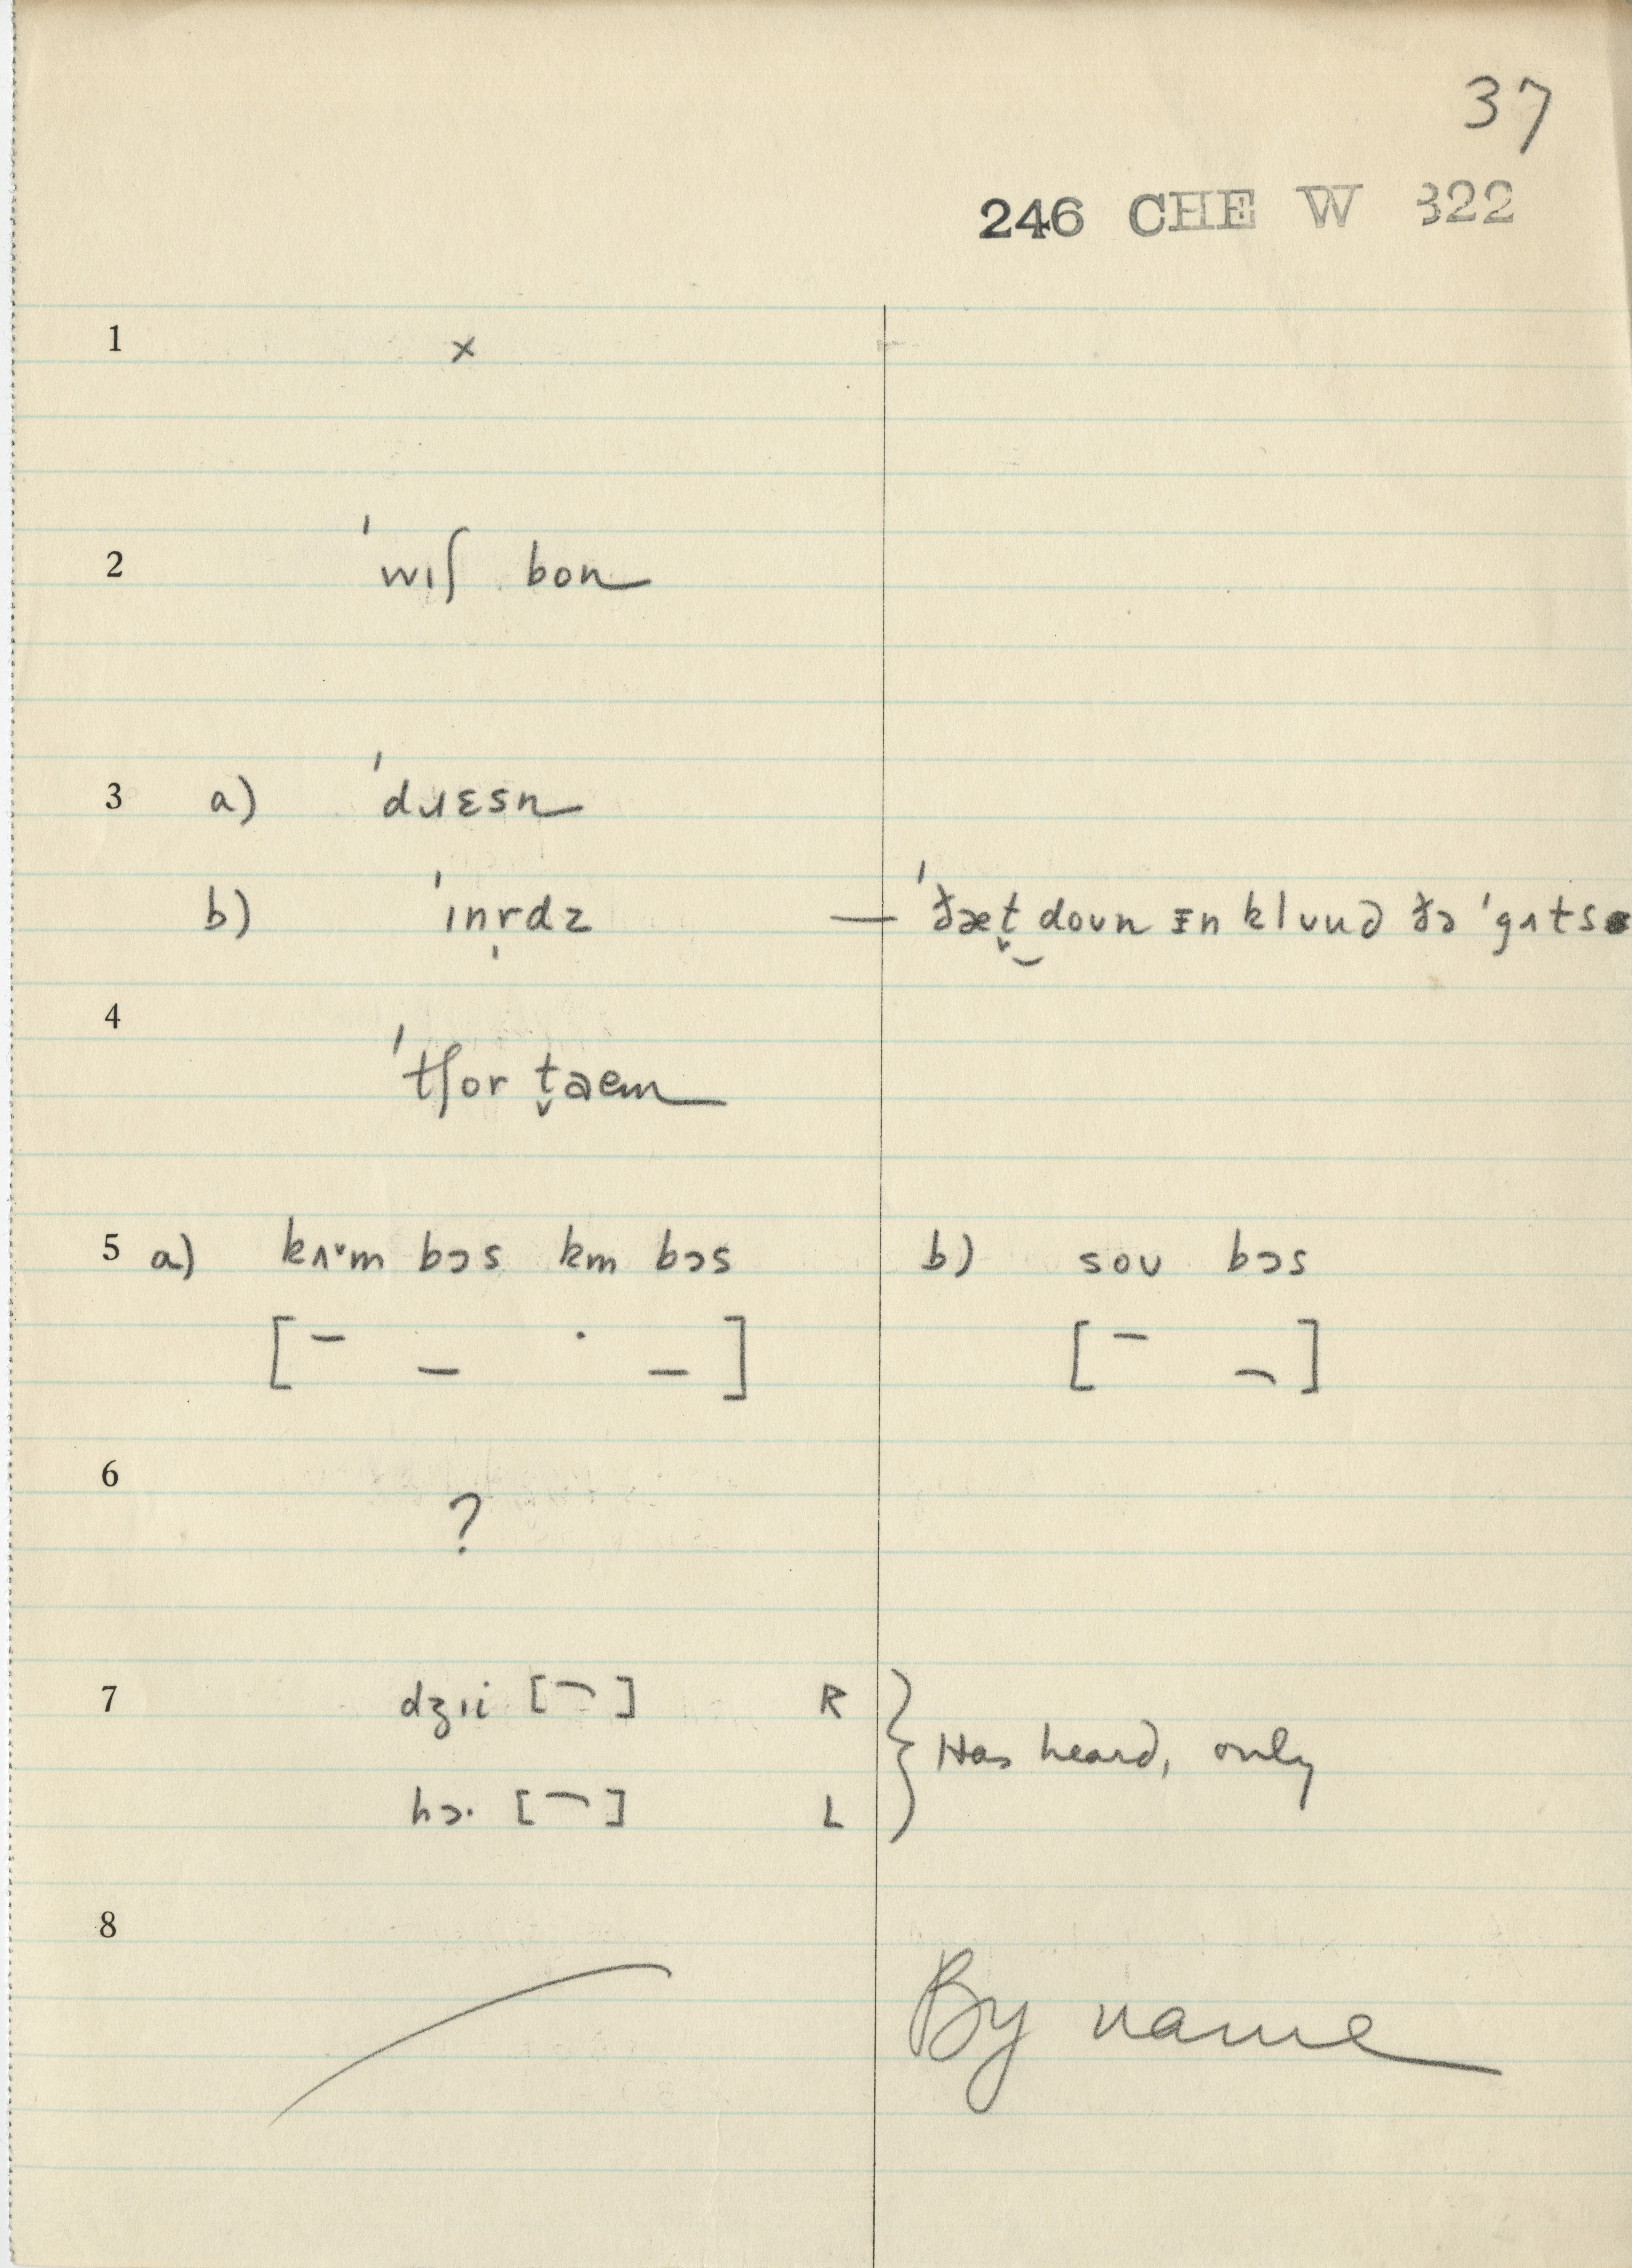 37
246 CHE W 322
1 ×
2 ˈwɪʃ bon
3 a) ˈdɹɛsn
b) ˈɪnr̩dz — ˈðæt̬‿doʊn ɪn klʊud ðə ˈgʌts
4 ˈtʃor t̬aem
5 a) kʌ˅m bɔs km bɔs b) soʊ bɔs
[ – _ · _ ] [ – ¬ ]
6 ?
7 dʒɪi [¬] R } Has heard, only
hɔ· [¬] L
8 By name